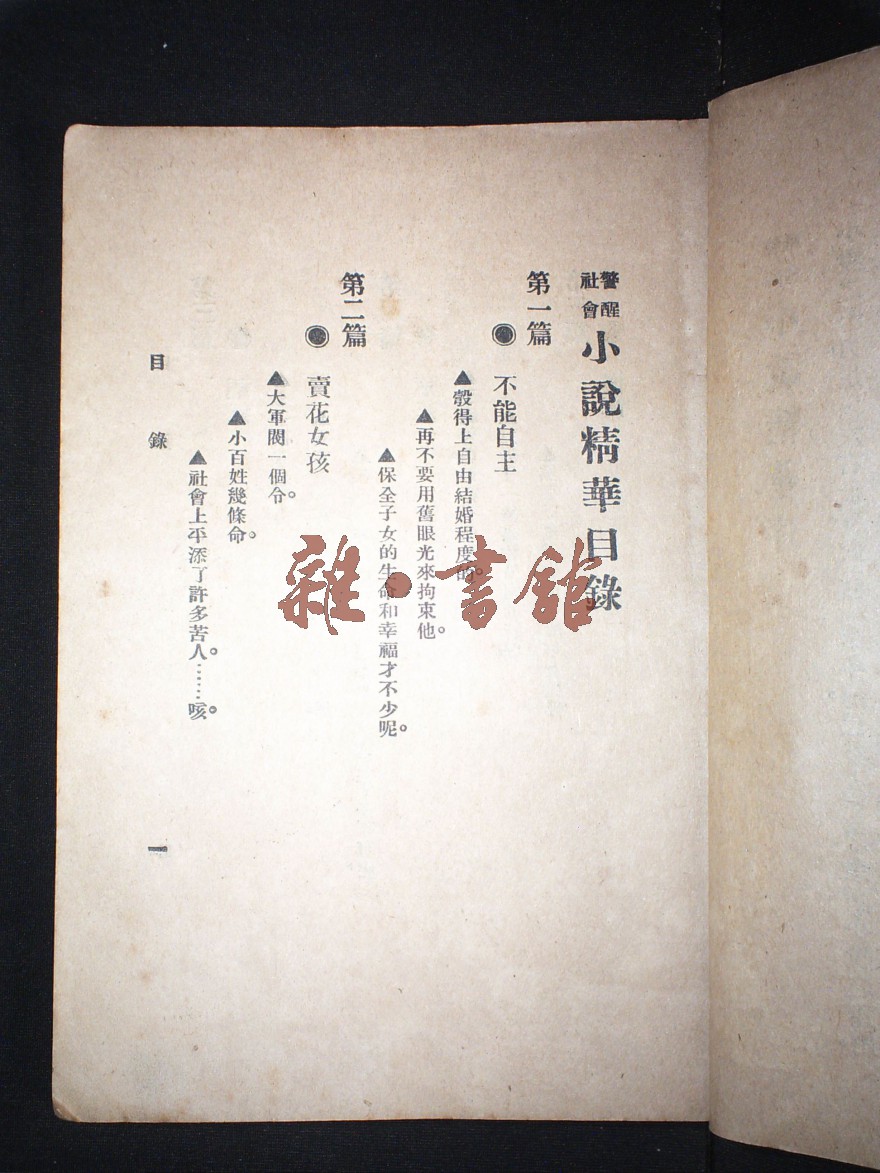 警醒社會小說精華目錄
第一篇
◉ 不能自主
▲彀得上自由結婚程度的。
▲再不要用舊眼光來拘束他。
▲保全子女的生命和幸福才不少呢。
第二篇
◉ 賣花女孩
▲大軍閥一個令。
▲小百姓幾條命。
▲社會上平添了許多苦人。……咳。
目錄
一
雜·書館